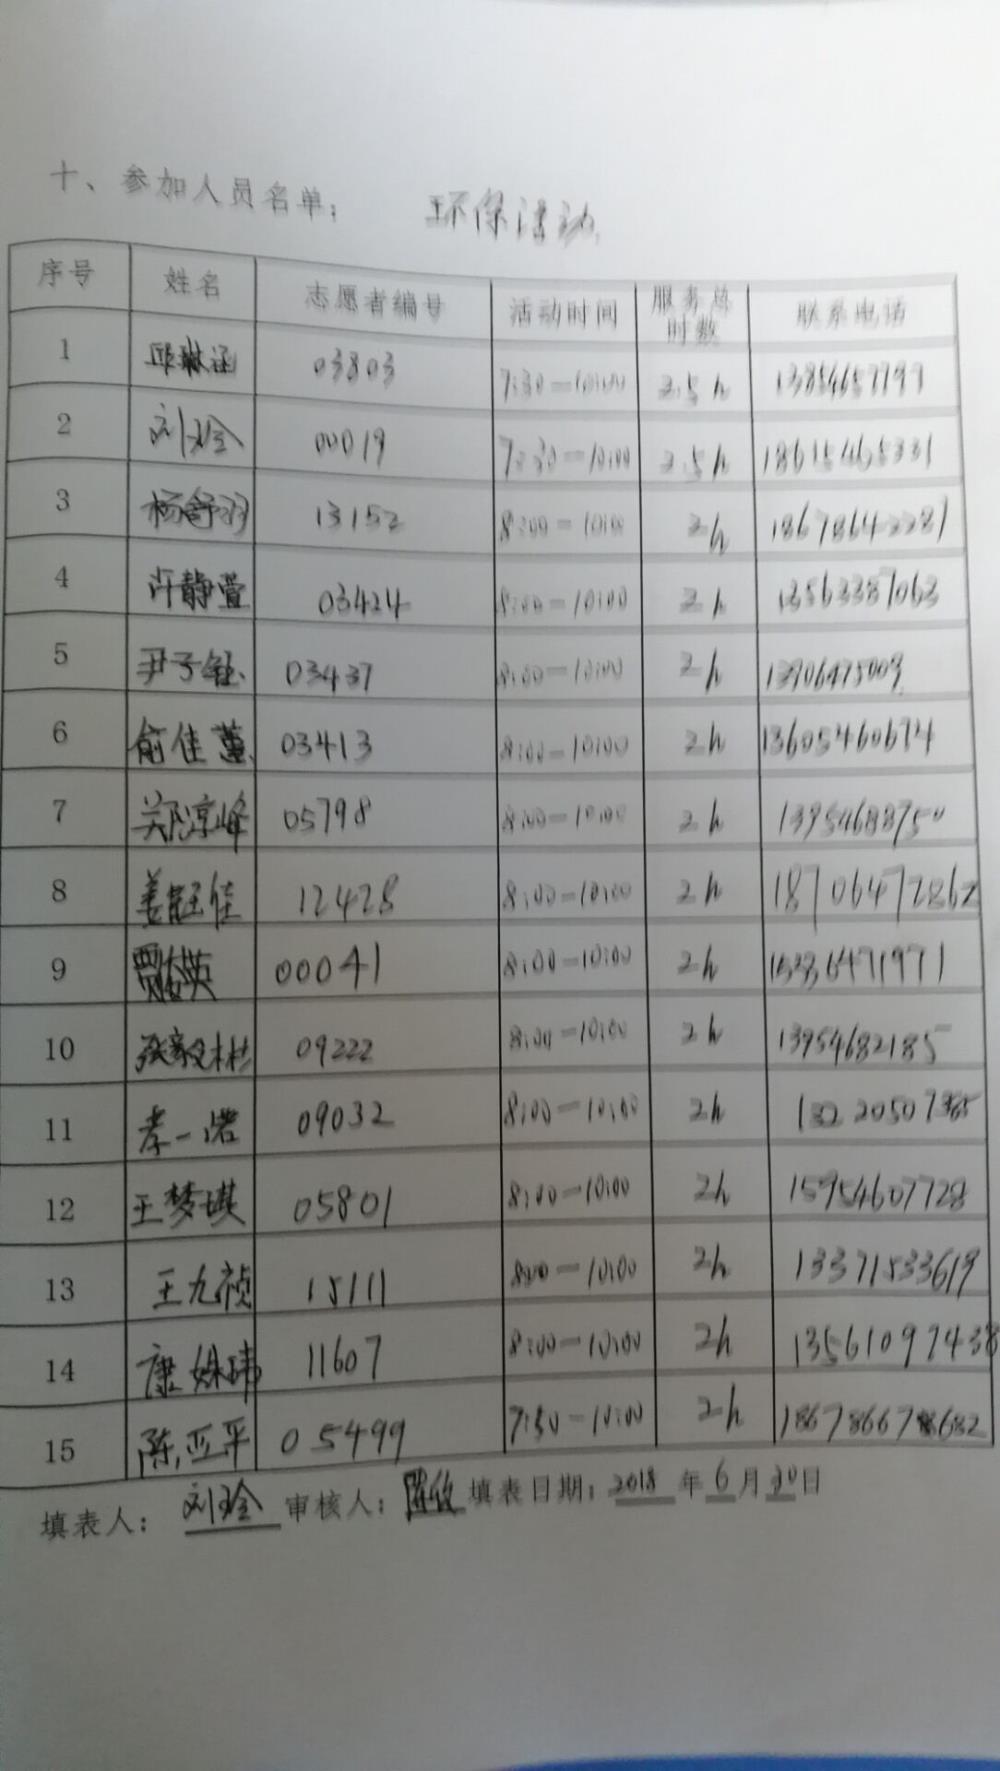 十、参加人员名单： 环保活动
序号 姓名 志愿者编号 活动时间 服务总时数 联系电话
1 邱琳涵 03803 7:30—10:00 2.5h 13854657797
2 刘玲 00019 7:30—10:00 2.5h 18615465331
3 杨舒羽 13152 8:00—10:00 2h 18678642281
4 许静萱 03424 8:00—10:00 2h 13563387063
5 尹子钰 03437 8:00—10:00 2h 13906475009
6 俞佳蕙 03413 8:00—10:00 2h 13605460674
7 郑淳峰 05798 8:00—10:00 2h 13954688750
8 姜佳 12428 8:00—10:00 2h 18706472862
9 贾英 00041 8:00—10:00 2h 15236471971
10 张毅彬 09222 8:00—10:00 2h 13954682185
11 李一诺 09032 8:00—10:00 2h 13220507385
12 王梦琪 05801 8:00—10:00 2h 15954607728
13 王九祯 15111 8:00—10:00 2h 13371533619
14 康姝玮 11607 8:00—10:00 2h 13561097438
15 陈亚平 05499 7:30—10:00 2h
填表人： 刘玲 审核人： 填表日期：2018 年 6 月 30 日